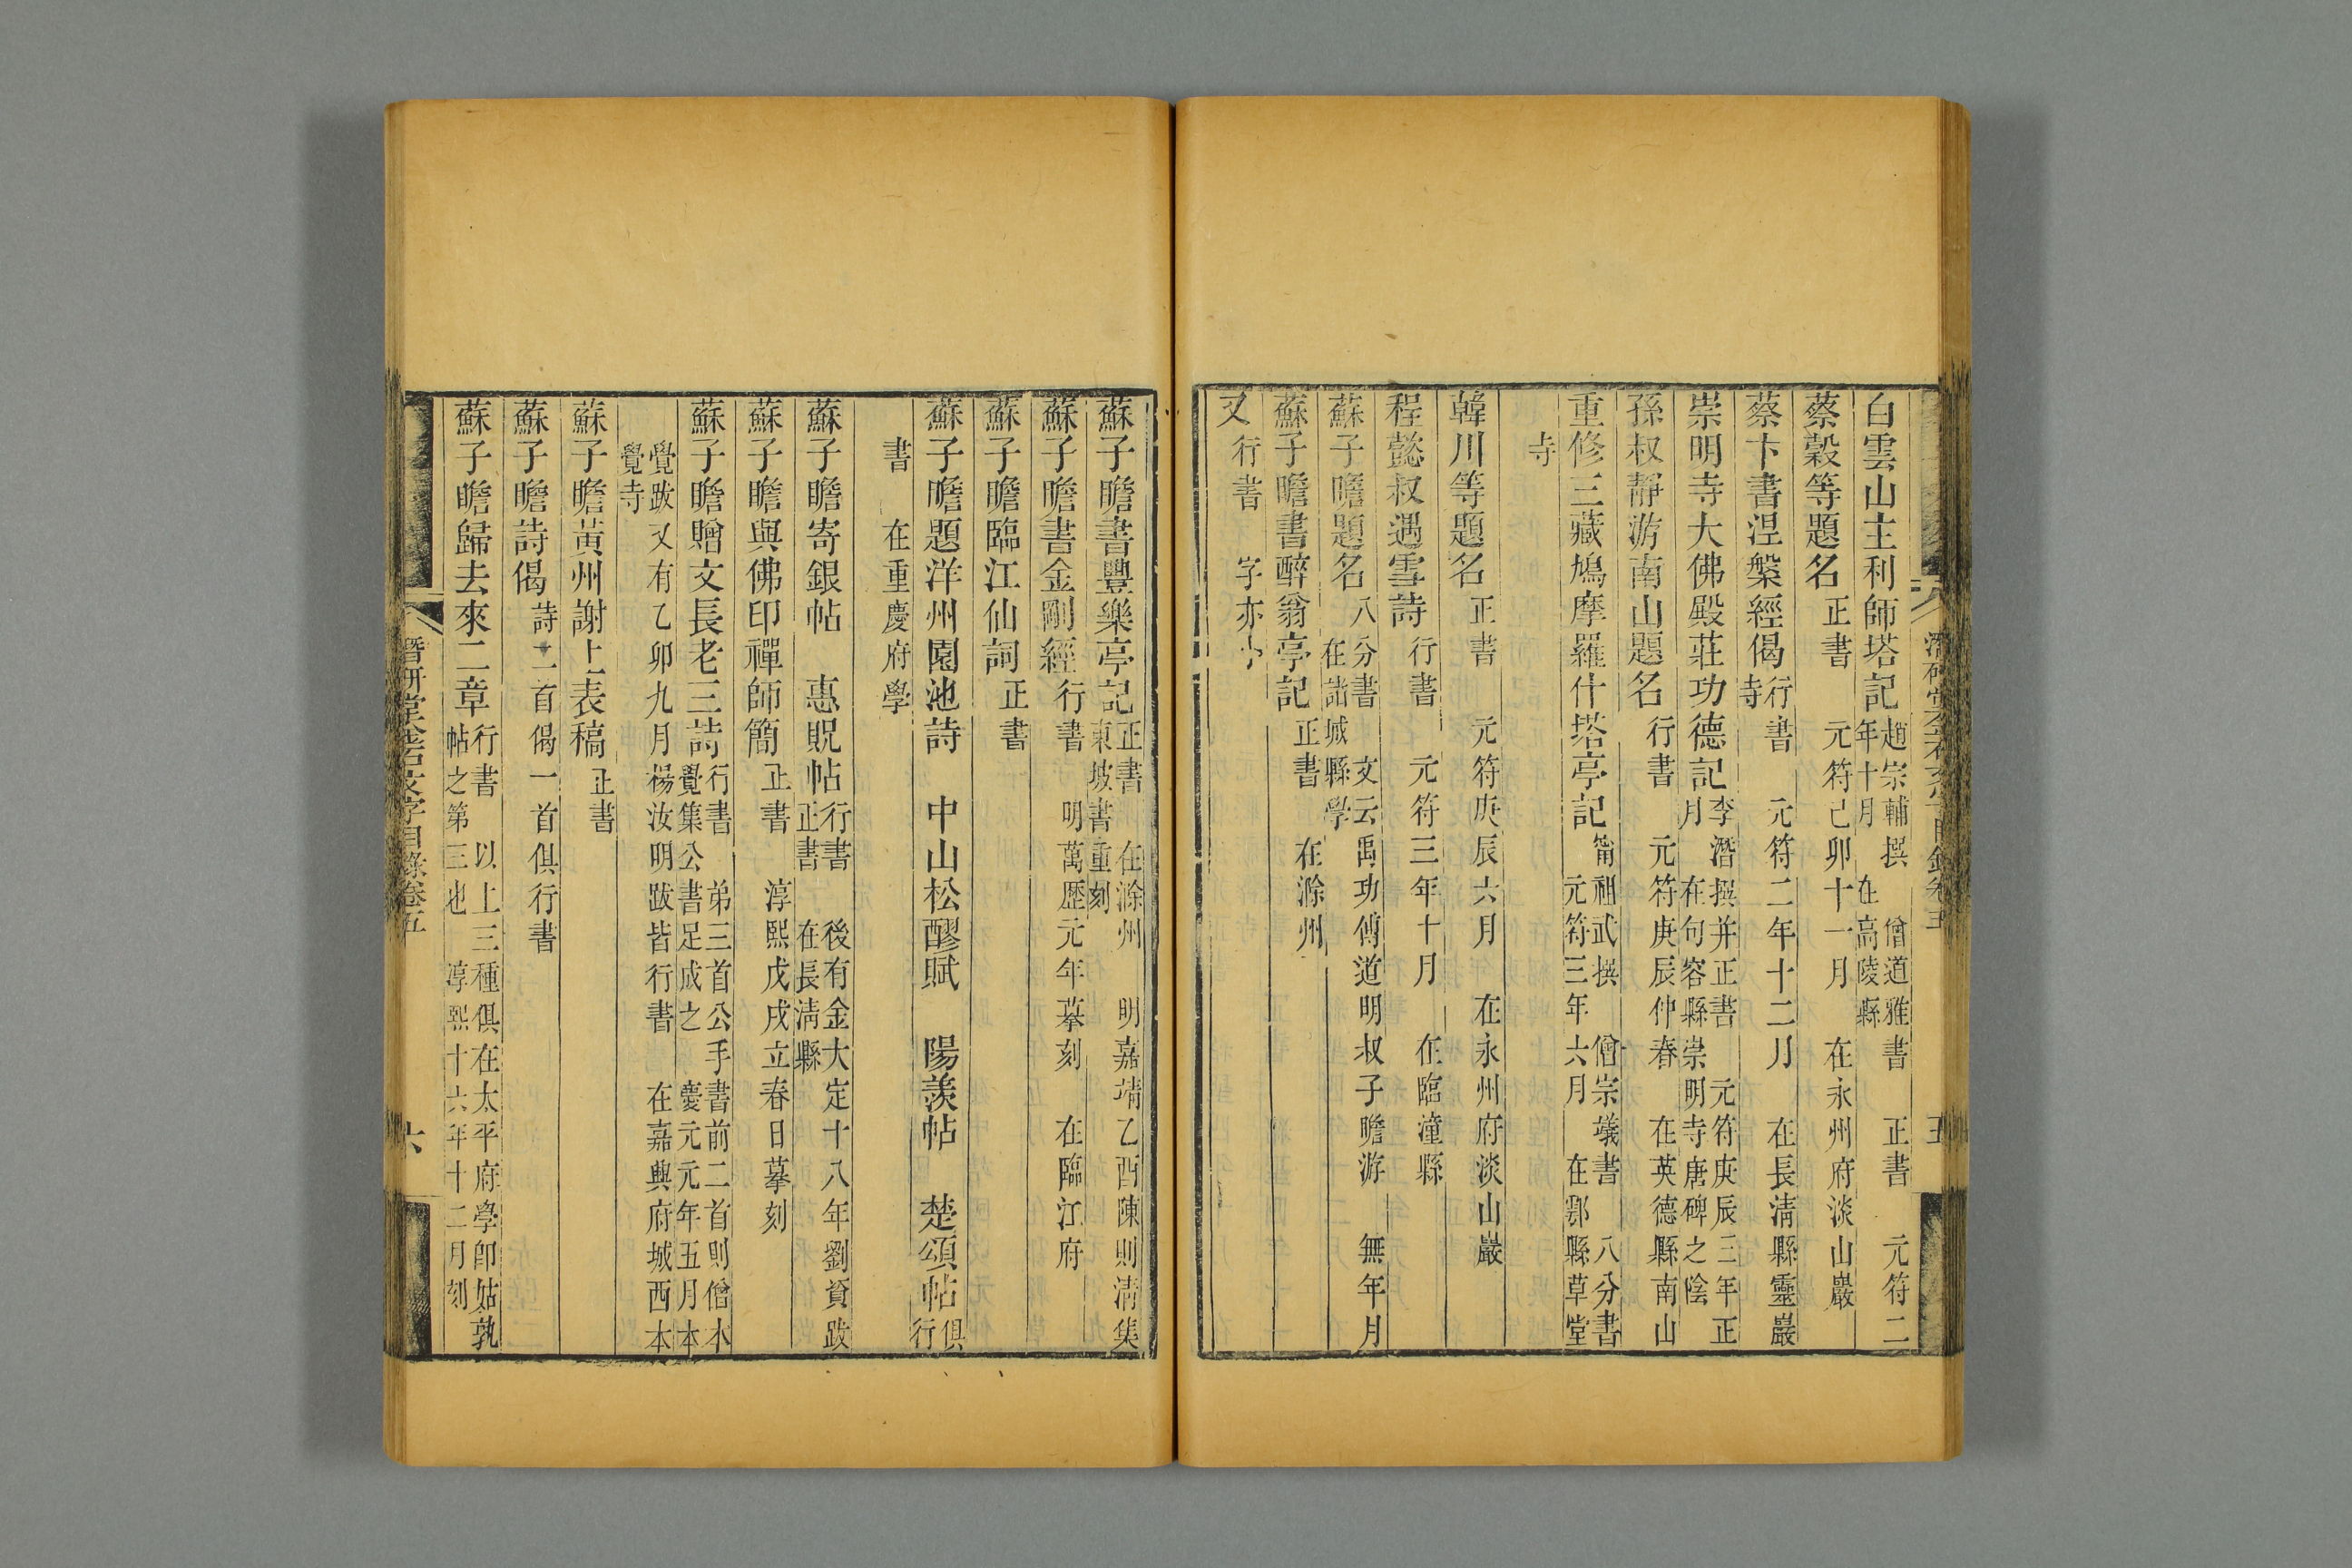 白雲山主利師塔記 趙宗輔撰 僧道雅書 正書 元符二
年十月 在高陵縣
蔡穀等題名 正書 元符己卯十一月 在永州府淡山巖
蔡卞書涅槃經偈 行書 元符二年十二月 在長清縣靈巖
寺
崇明寺大佛殿莊功德記 李潛撰并正書 元符庚辰三年正
月 在句容縣崇明寺唐碑之陰
孫叔靜游南山題名 行書 元符庚辰仲春 在英德縣南山
重修三藏鳩摩羅什塔亭記 甯祖武撰 僧宗㠖書 八分書
元符三年六月 在鄠縣草堂
寺
韓川等題名 正書 元符庚辰六月 在永州府淡山巖
程懿叔遇雪詩 行書 元符三年十月 在臨潼縣
蘇子瞻題名 八分書 文云禹功傅道明叔子瞻游 無年月
在諸城縣學
蘇子瞻書醉翁亭記 正書 在滁州
又 行書 字亦小
潛研堂金石文字目錄卷五 五
蘇子瞻書豐樂亭記 正書 在滁州 明嘉靖乙酉陳則清集
東坡書重刻
蘇子瞻書金剛經 行書 明萬歷元年摹刻 在臨江府
蘇子瞻臨江仙詞 正書
蘇子瞻題洋州園池詩 中山松醪賦 陽羨帖 楚頌帖 俱
行
書 在重慶府學
蘇子瞻寄銀帖 惠貺帖 行書 後有金大定十八年劉資跋
正書 在長淸縣
蘇子瞻與佛印禪師簡 正書 淳熙戊戌立春日摹刻
蘇子瞻贈文長老三詩 行書 弟三首公手書前二首則僧本
覺集公書足成之 慶元元年五月本
覺跋又有乙卯九月楊汝明跋皆行書 在嘉興府城西本
覺寺
蘇子瞻黃州謝上表稿 正書
蘇子瞻詩偈 詩二首偈一首俱行書
蘇子瞻歸去來二章 行書 以上三種俱在太平府學卽姑孰
帖之第三也 淳熙十六年十二月刻
潛研堂金石文字目錄卷五 六